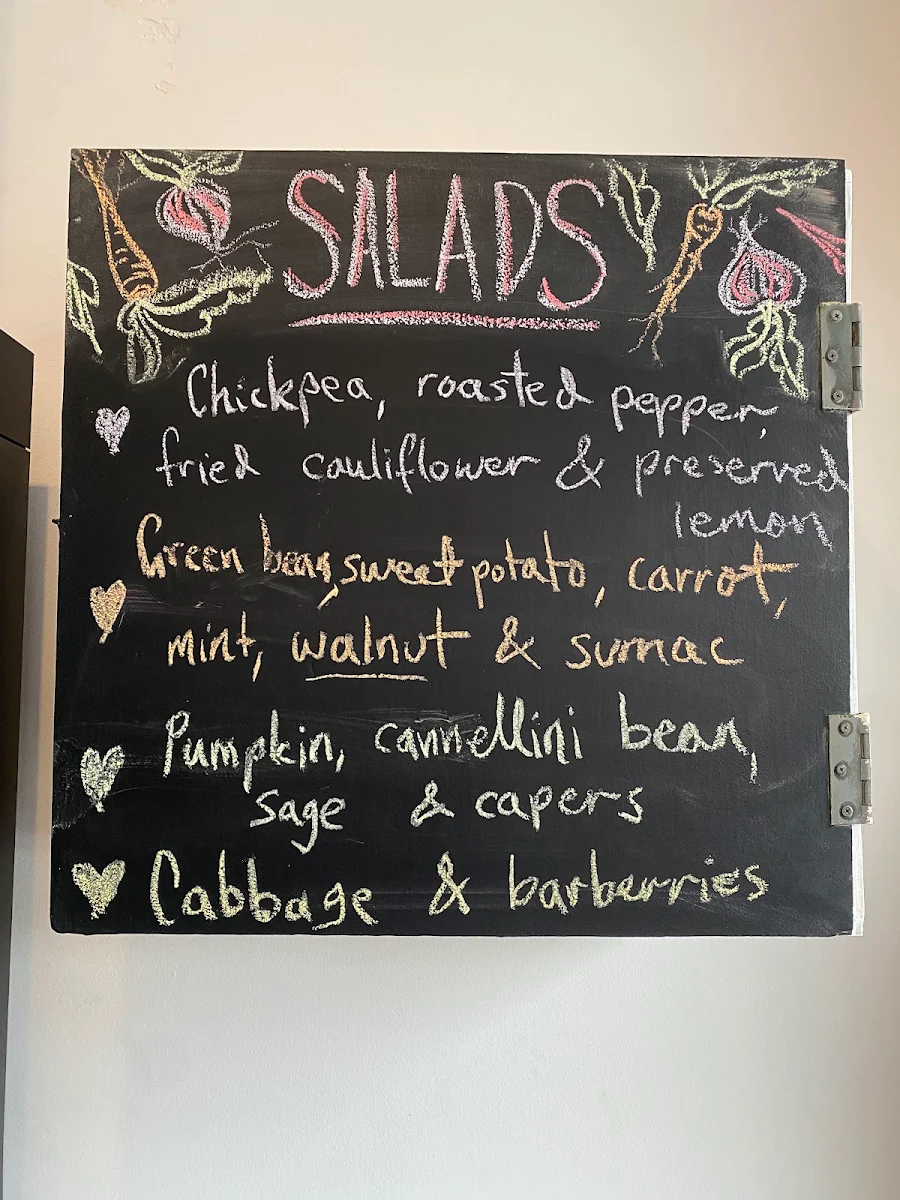 SALADS
Chickpea, roasted pepper,
fried cauliflower & preserved
lemon
Green bean, sweet potato, carrot,
mint, walnut & sumac
Pumpkin, cannellini bean,
sage & capers
Cabbage & barberries